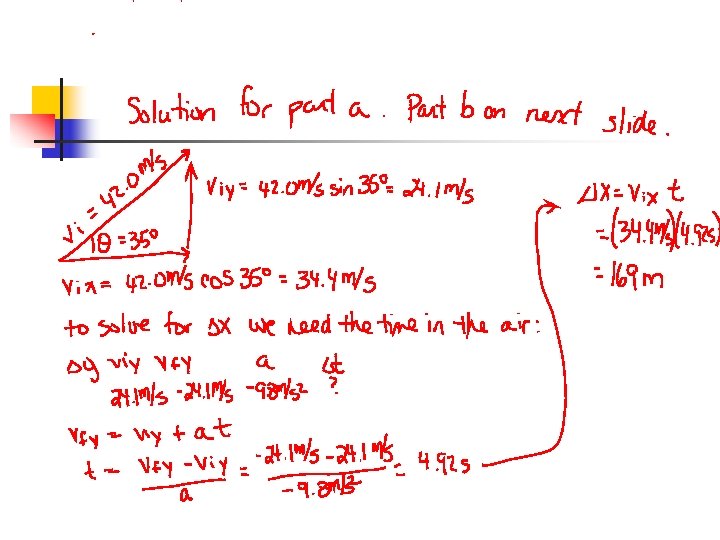 Solution for part a. Part b on next slide.
Vi = 42.0m/s
θ = 35°
Viy = 42.0m/s sin 35° = 24.1m/s
Vix = 42.0m/s cos 35° = 34.4m/s
to solve for Δx we need the time in the air:
Δy viy vfy a Δt
24.1m/s -24.1m/s -9.8m/s² ?
Vfy = viy + at
t = Vfy - Viy / a = -24.1m/s - 24.1m/s / -9.8m/s² = 4.92s
Δx = Vix t
= (34.4m/s)(4.92s)
= 169m